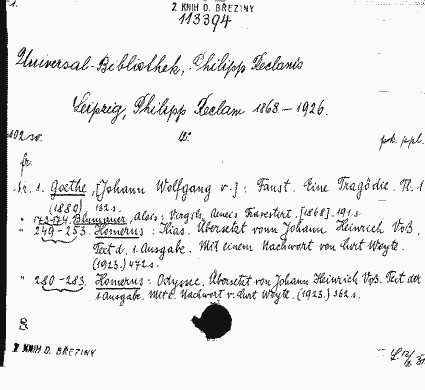 1.
Z KNIH O. BŘEZINY
113394
Universal-Bibliothek, Philipp Reclams
Leipzig, Philipp Reclam 1868 – 1926.
102 sv. 16°
fr.
Nr. 1. Goethe, [Johann Wolfgang v.]: Faust. Eine Tragödie. Tl. 1
(1880) 132 s.
" 172-174. Blumauer, Alois: Virgils Aneis travestirt. [1868]. 191 s.
" 249 – 253. Homerus: Ilias. Übersetzt von Johann Heinrich Voß.
Text d. 1. Ausgabe. Mit einem Nachwort von Curt Woyte.
(1923.) 472 s.
" 280 – 283. Homerus: Odyssee. Übersetzt von Johann Heinrich Voß. Text der
1 Ausgabe. Mit e. Nachwort v. Curt Woyte. (1923.) 362 s.
Z KNIH O. BŘEZINY